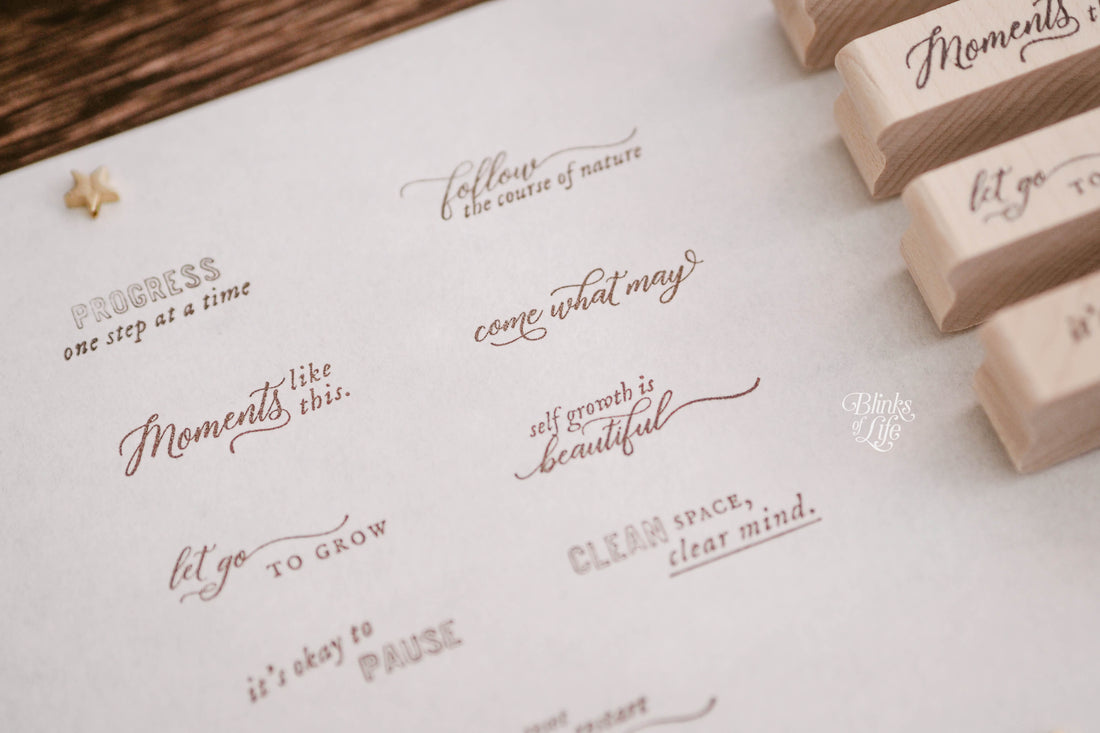 PROGRESS
one step at a time
Moments like
this.
let go TO GROW
it's okay to
PAUSE
follow
the course of nature
come what may
self growth is
beautiful
CLEAN SPACE,
clear mind.
restart
Moments
let go TO
it's
Blinks
of
Life